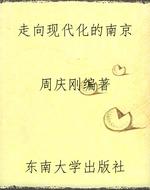 走向现代化的南京
周庆刚编著
东南大学出版社